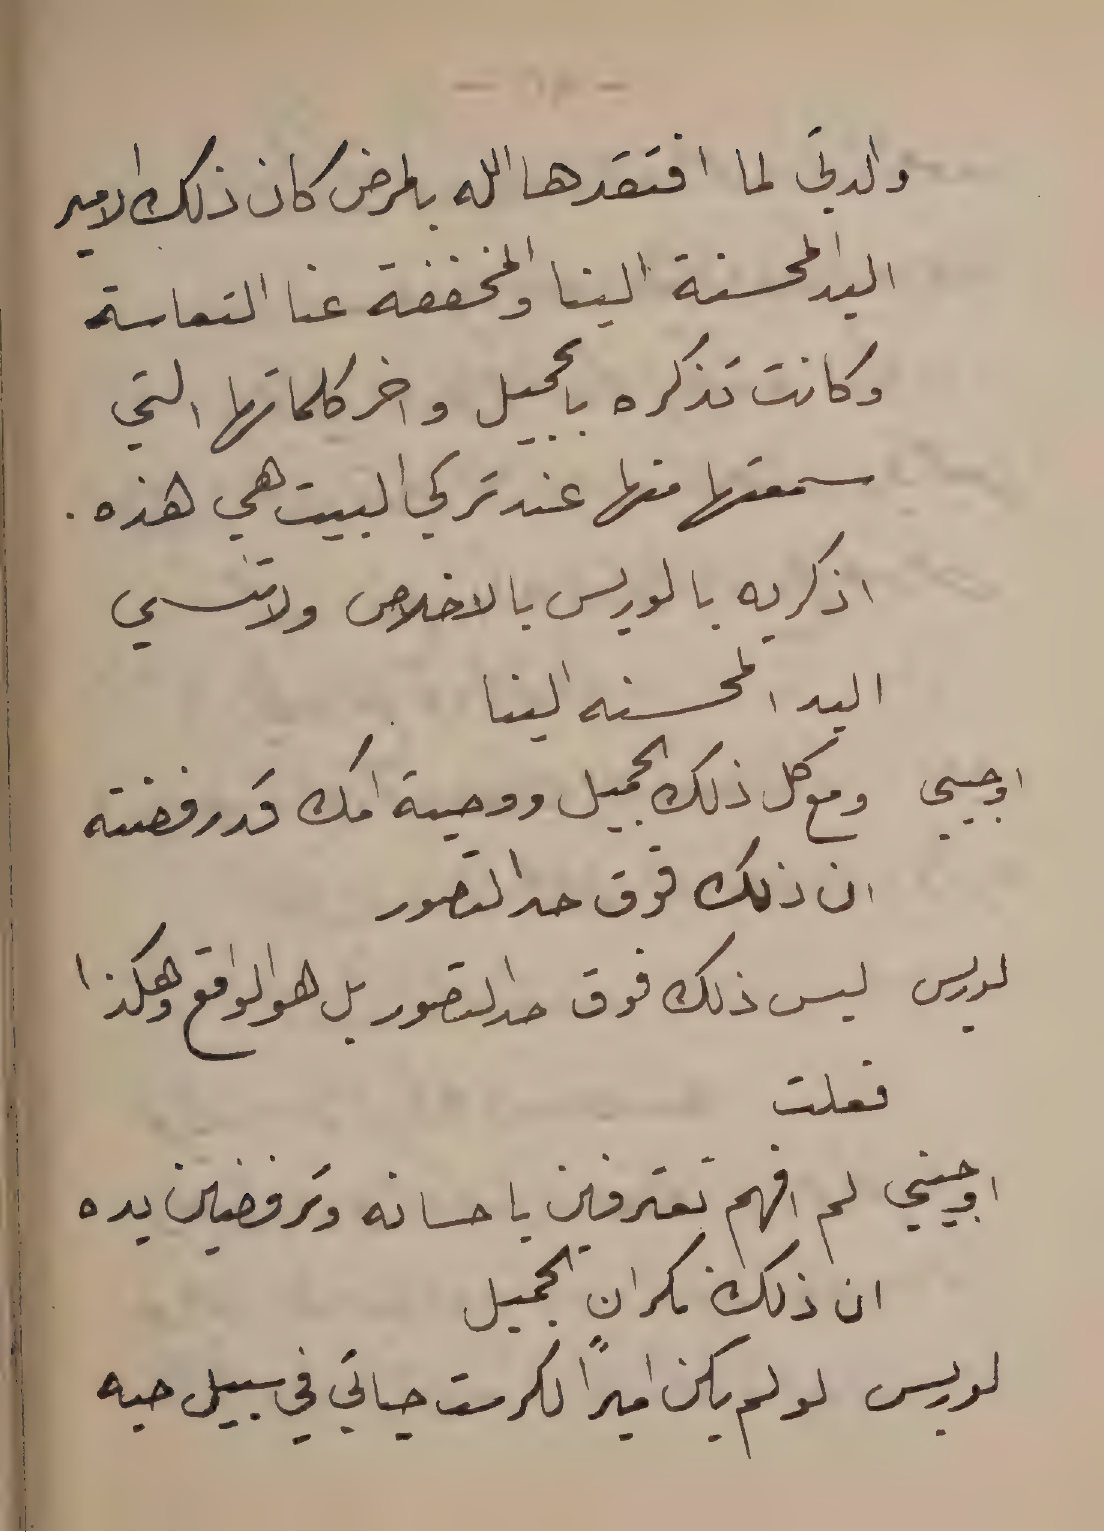 والدتي لما افتقدها الله بالمرض كان ذلك الامير
اليد المحسنة الينا والمخففة عنا التعاسة
وكانت تذكره بالجميل واخر كلماتها التي
سمعتها منها عند تركي البيت هي هذه .
اذكريه يا لوريس بالاخلاص ولا تنسي
اليد المحسنه الينا
اوجيني ومع كل ذلك الجميل ووصية امك قد رفضته
ان ذلك فوق حد التصور
لوريس ليس ذلك فوق حد التصور بل هو الواقع وهكذا
فعلت
اوجيني لم افهم تعترفين باحسانه وترفضين يده
ان ذلك نكران الجميل
لوريس لو لم يكن اميرًا لكرست حياتي في سبيل حبه